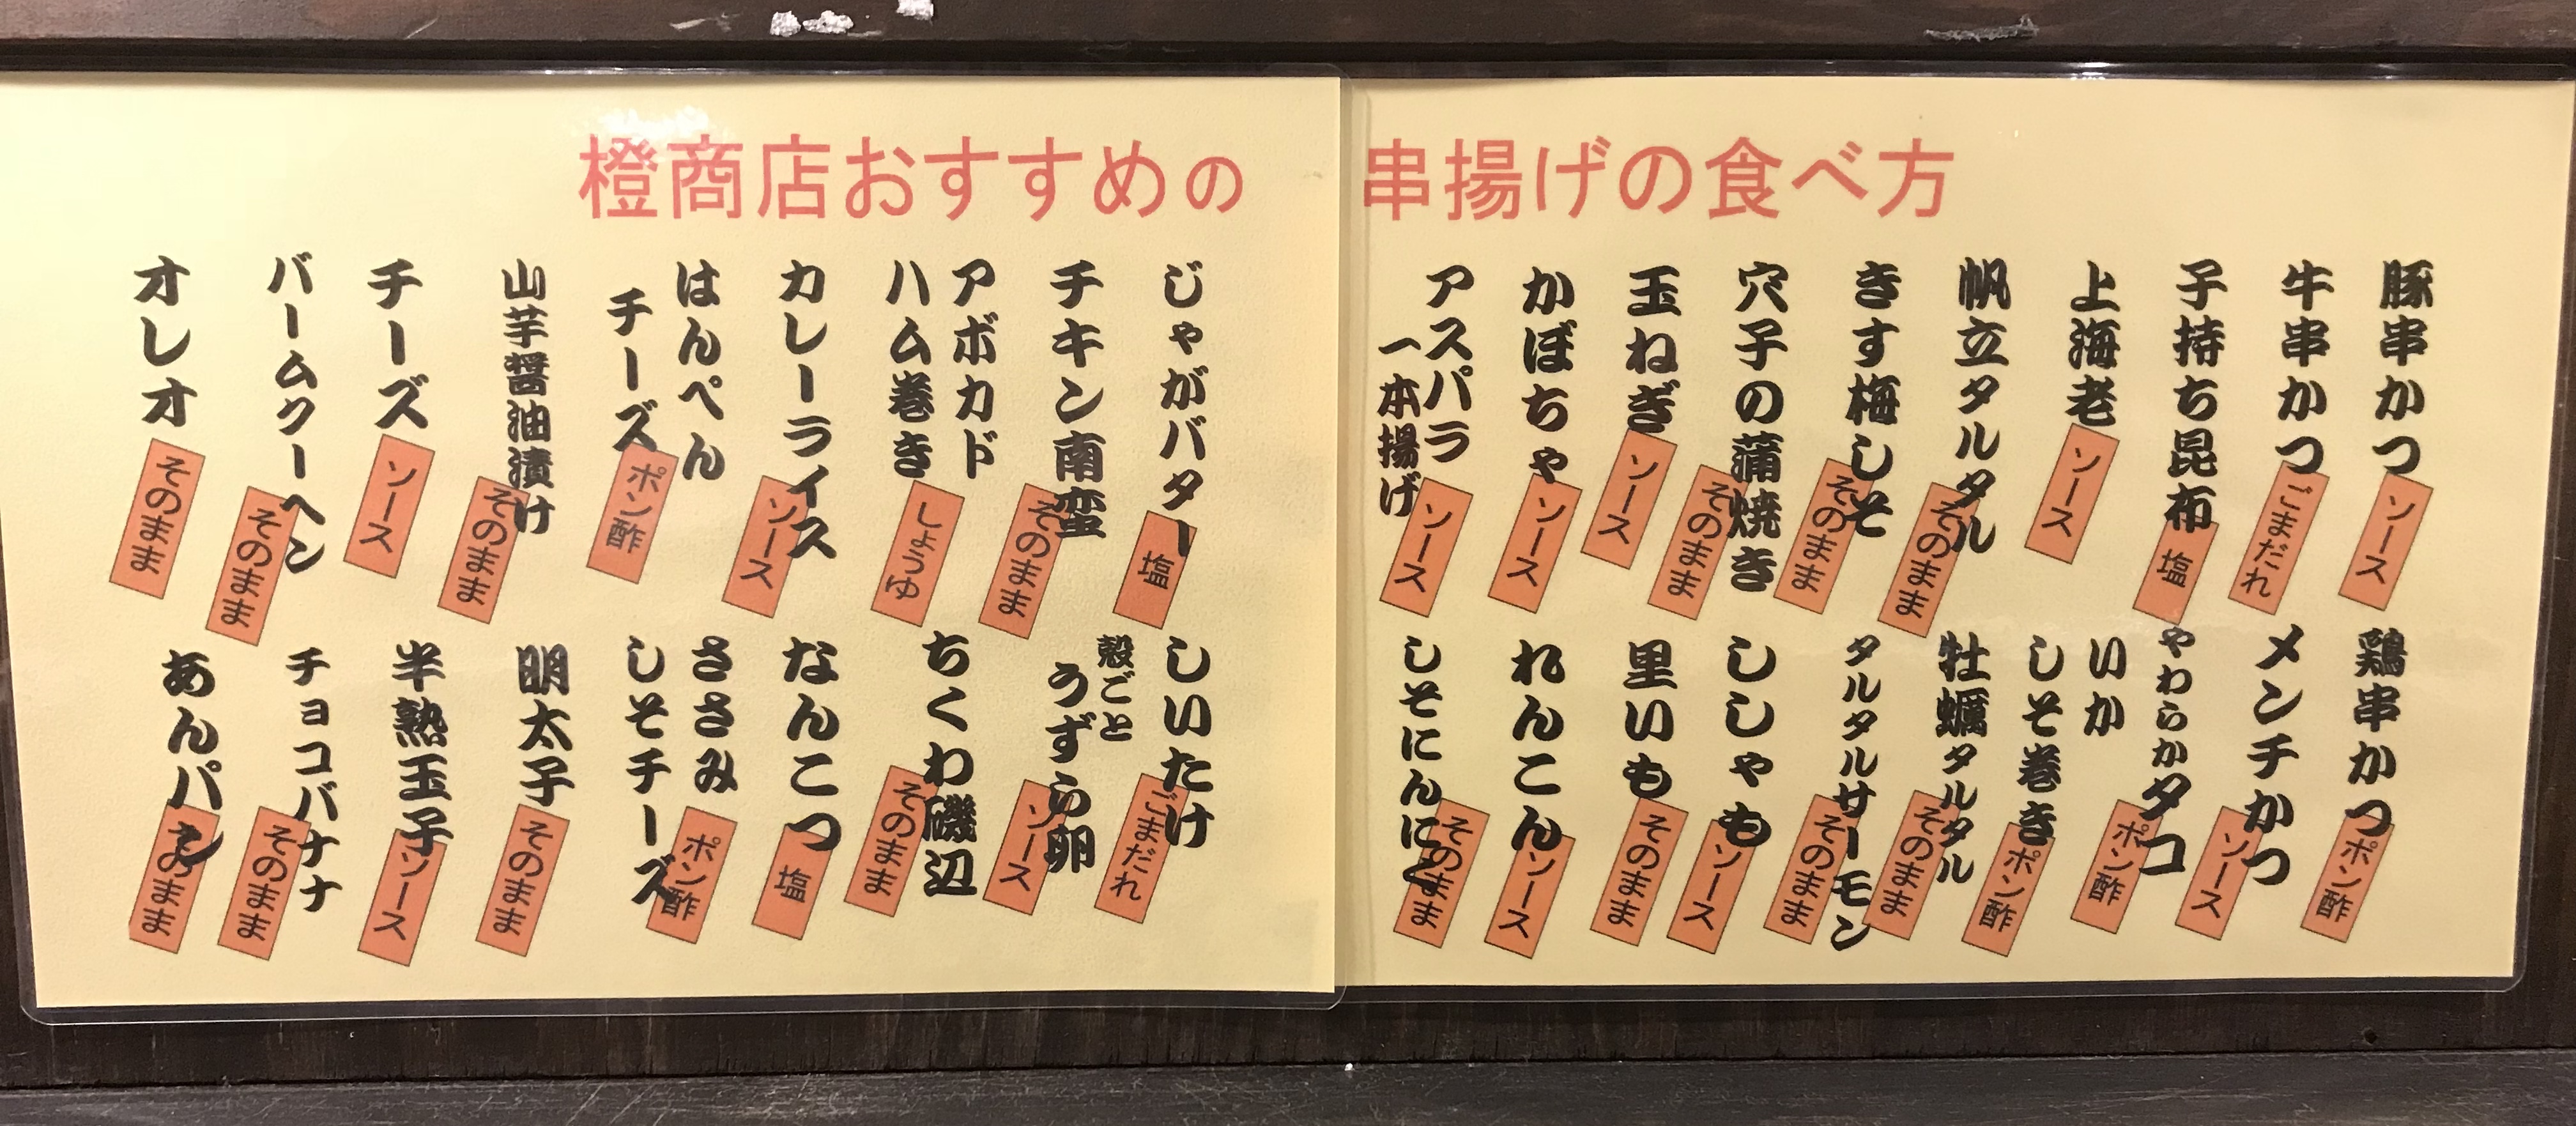 橙商店おすすめの 串揚げの食べ方
豚串かつ
ソース
牛串かつ
ごまだれ
子持ち昆布
塩
上海老
ソース
帆立タルタル
そのまま
きす梅しそ
そのまま
穴子の蒲焼き
そのまま
玉ねぎ
ソース
かぼちゃ
ソース
アスパラ
一本揚げ
ソース
鶏串かつ
ポン酢
メンチかつ
ソース
やわらかタコ
ポン酢
いか
しそ巻き
ポン酢
牡蠣タルタル
そのまま
タルタルサーモン
そのまま
ししゃも
ソース
里いも
そのまま
れんこん
ソース
しそにんにく
そのまま
じゃがバター
塩
チキン南蛮
そのまま
アボカド
ハム巻き
しょうゆ
カレーライス
ソース
はんぺん
チーズ
ポン酢
山芋醤油漬け
そのまま
チーズ
ソース
バームクーヘン
そのまま
オレオ
そのまま
しいたけ
ごまだれ
殻ごと
うずら卵
ソース
ちくわ磯辺
そのまま
なんこつ
塩
ささみ
しそチーズ
ポン酢
明太子
そのまま
半熟玉子
ソース
チョコバナナ
そのまま
あんパン
そのまま